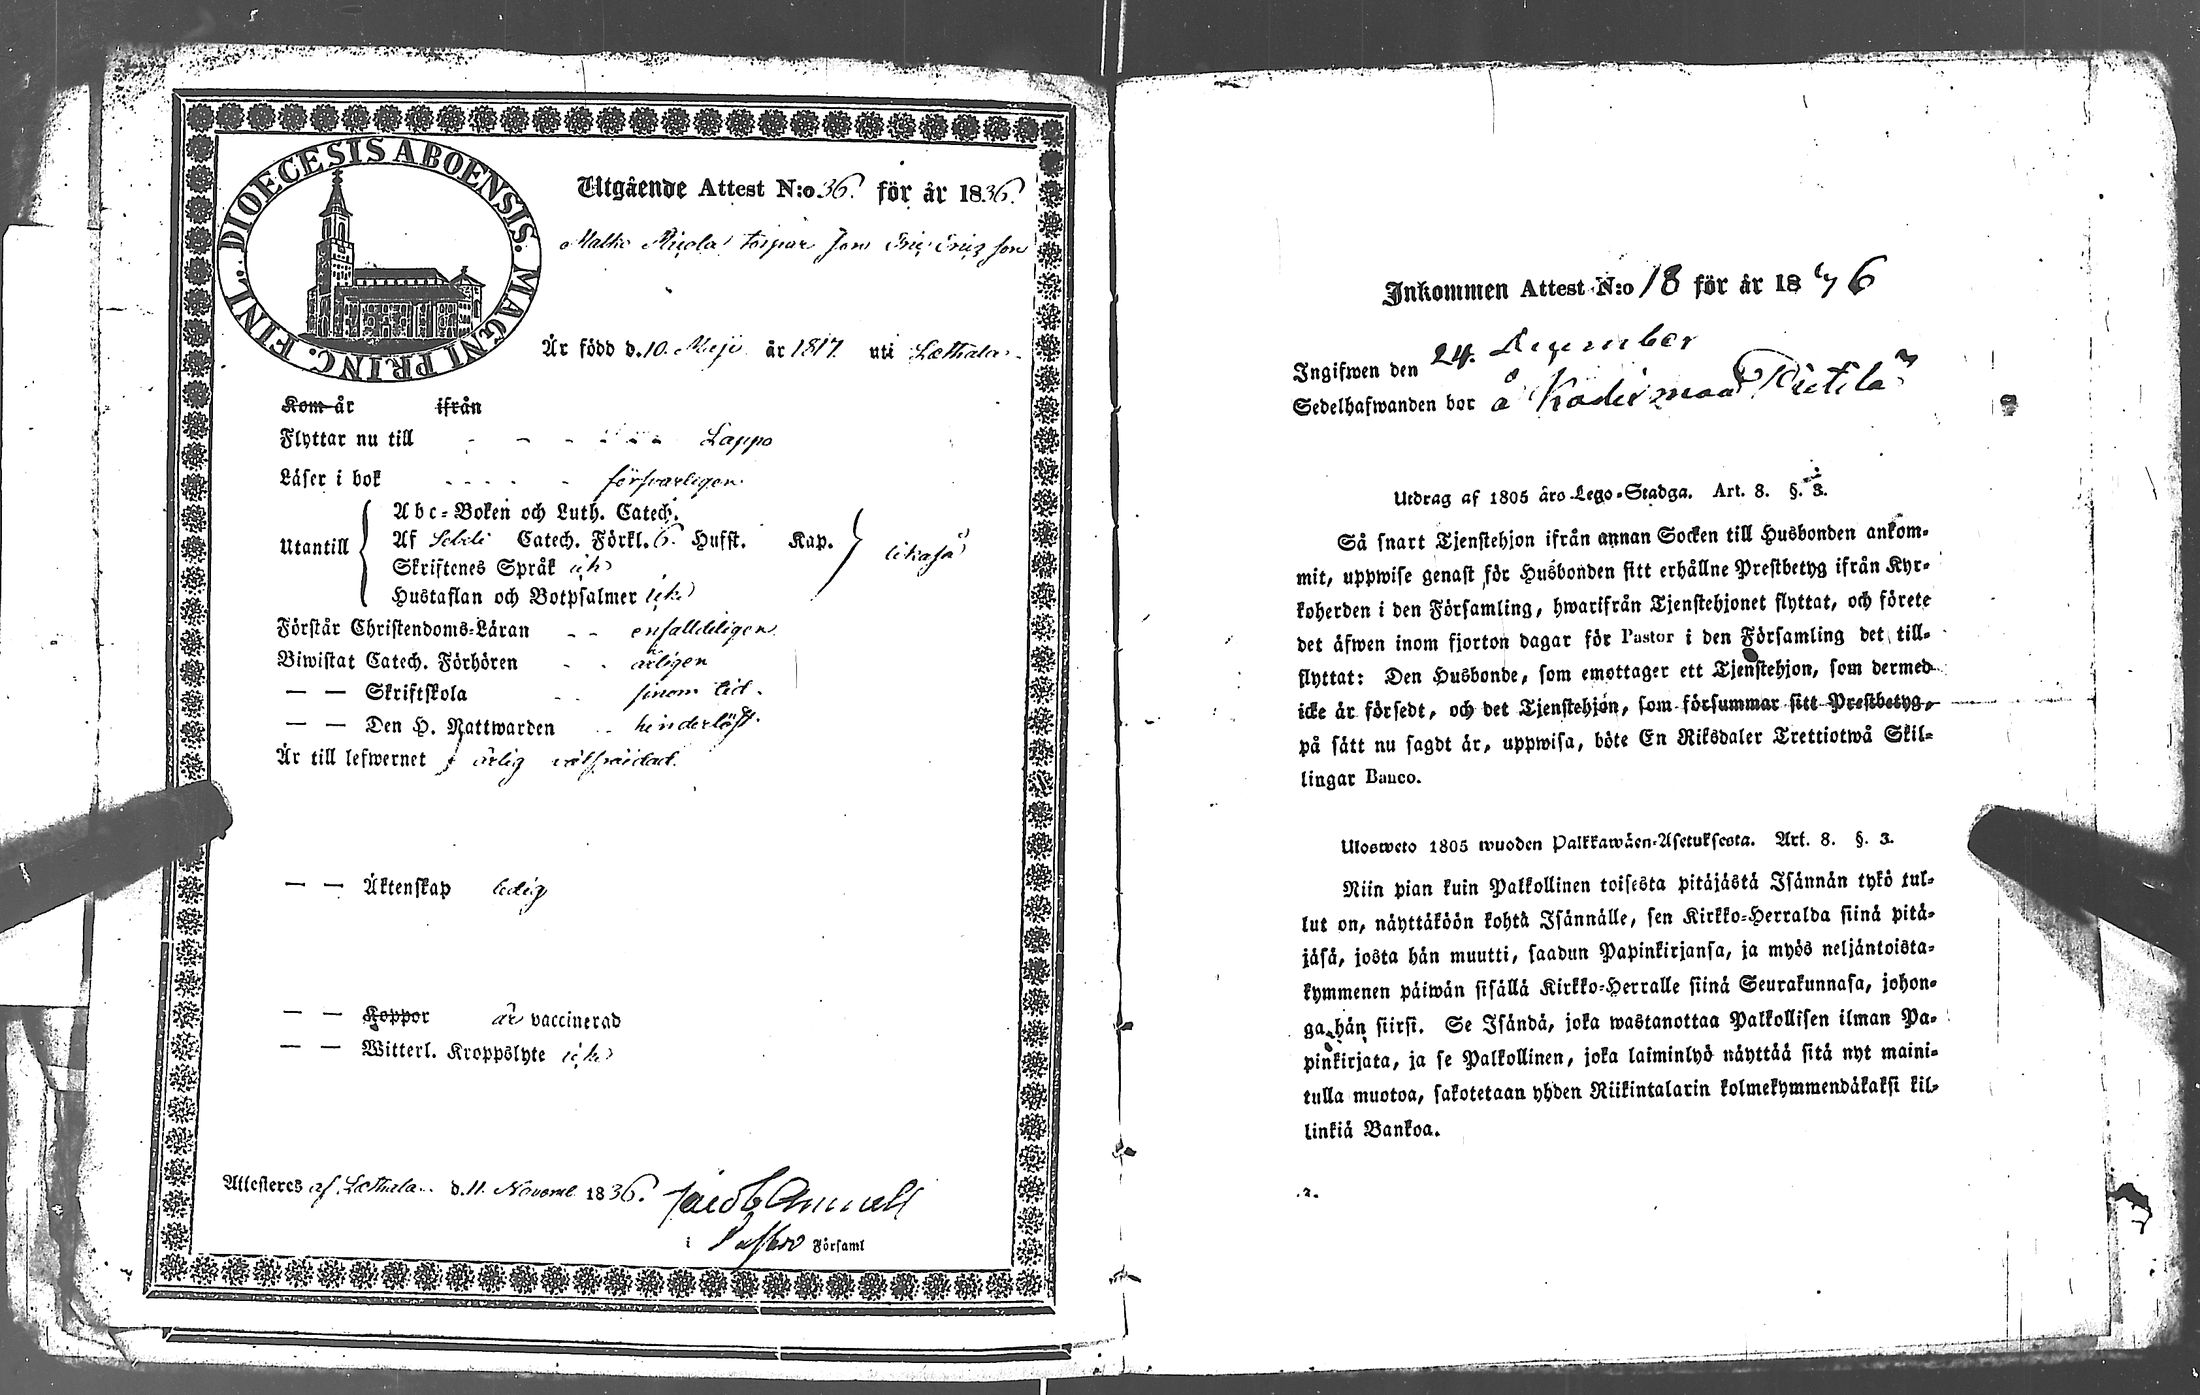 DIOECESIS ABOENSIS. MAGNI PRINC. FINL.
Utgående Attest N:o 36. för år 1836.
Torpar Son Eric Ericsson
Är född d. 10. Maji år 1817. uti Lethala
Kom år ifrån
Flyttar nu till - - - - - - Lappo
Läser i bok - - - - - försvarligen
Utantill
Abc-Boken och Luth. Catech.
Af Sebeli Catech. Förkl. 6. Hufst. Kap. likaså
Skriftenes Språk icke
Hustaflan och Botpsalmer icke
Förstår Christendoms-Läran - - enfalldeligen
Biwistat Catech. Förhören - - årligen
— — Skriftskola - - sinom tid.
— — Den H. Nattwarden - - hinderlöst.
Är till lefwernet ärlig välfräjdad.
— — Äktenskap ledig
— — Koppor är vaccinerad
— — Witterl. Kroppslyte icke
Attesteres af Lethala d. 11. Novemb. 1836. Jacob
i Församl
Inkommen Attest N:o 18 för år 18
Ingifwen den 24. December
Sedelhafwanden bor å
Utdrag af 1805 års Lego-Stadga. Art. 8. §. 3.
Så snart Tjenstehjon ifrån annan Socken till Husbonden ankom-
mit, uppwise genast för Husbonden sitt erhållne Prestbetyg ifrån Kyr-
koherden i den Församling, hwarifrån Tjenstehjonet flyttat, och förete
det äfwen inom fjorton dagar för Pastor i den Församling det till-
flyttat: Den Husbonde, som emottager ett Tjenstehjon, som dermed
icke är försedt, och det Tjenstehjon, som försummar sitt Prestbetyg,
på sätt nu sagdt är, uppwisa, böte En Riksdaler Trettiotwå Skil-
lingar Banco.
Ulosweto 1805 wuoden Palkkawäen-Asetuksesta. Art. 8. §. 3.
Niin pian kuin Palkollinen toisesta pitäjästä Isännän tykö tul-
lut on, näyttäköön kohta Isännälle, sen Kirkko-Herralda siinä pitä-
jäsä, josta hän muutti, saadun Papinkirjansa, ja myös neljäntoista-
kymmenen päiwän sisällä Kirkko-Herralle siinä Seurakunnasa, johon-
ga hän siirsi. Se Isändä, joka wastanottaa Palkollisen ilman Pa-
pinkirjata, ja se Palkollinen, joka laiminlyö näyttää sitä nyt maini-
tulla muotoa, sakotetaan yhden Riikintalarin kolmekymmendäkaksi kil-
linkiä Bankoa.